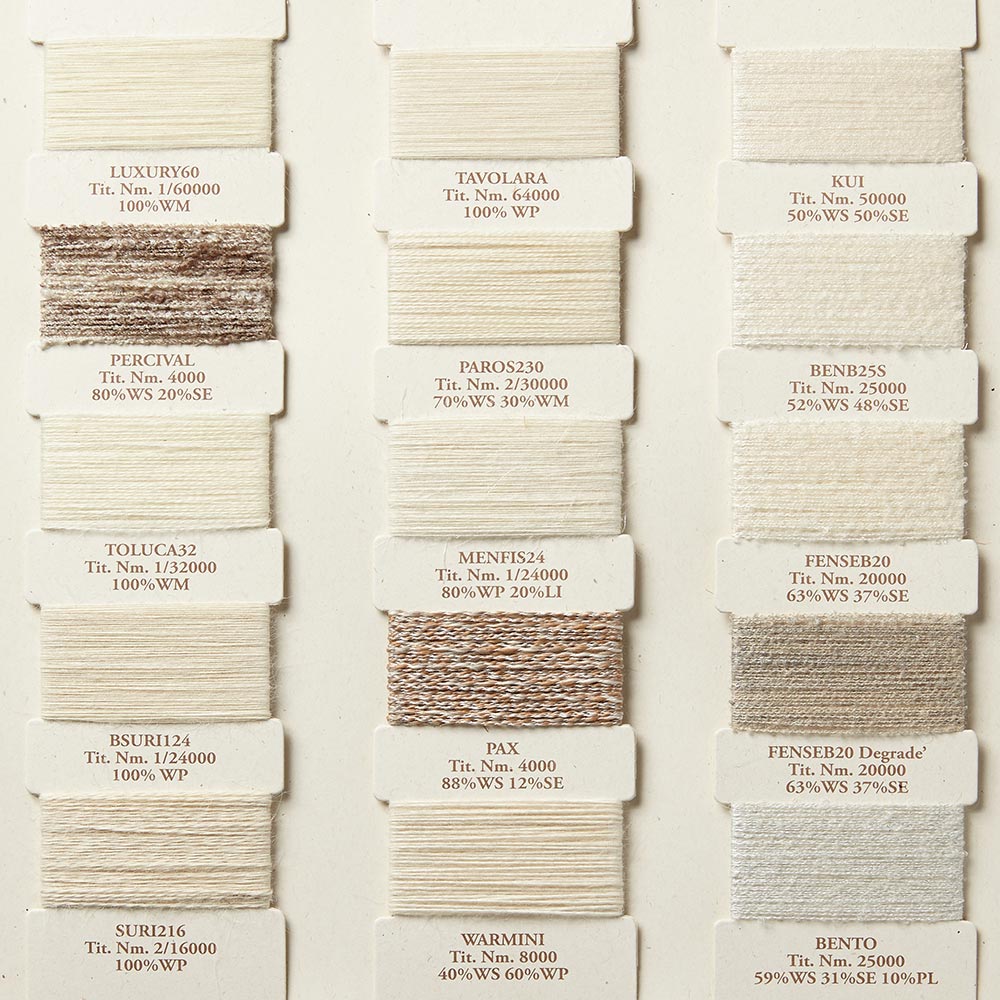 LUXURY60
Tit. Nm. 1/60000
100%WM
PERCIVAL
Tit. Nm. 4000
80%WS 20%SE
TOLUCA32
Tit. Nm. 1/32000
100%WM
BSURI124
Tit. Nm. 1/24000
100% WP
SURI216
Tit. Nm. 2/16000
100%WP
TAVOLARA
Tit. Nm. 64000
100% WP
PAROS230
Tit. Nm. 2/30000
70%WS 30%WM
MENFIS24
Tit. Nm. 1/24000
80%WP 20%LI
PAX
Tit. Nm. 4000
88%WS 12%SE
WARMINI
Tit. Nm. 8000
40%WS 60%WP
KUI
Tit. Nm. 50000
50%WS 50%SE
BENB25S
Tit. Nm. 25000
52%WS 48%SE
FENSEB20
Tit. Nm. 20000
63%WS 37%SE
FENSEB20 Degrade’
Tit. Nm. 20000
63%WS 37%SE
BENTO
Tit. Nm. 25000
59%WS 31%SE 10%PL